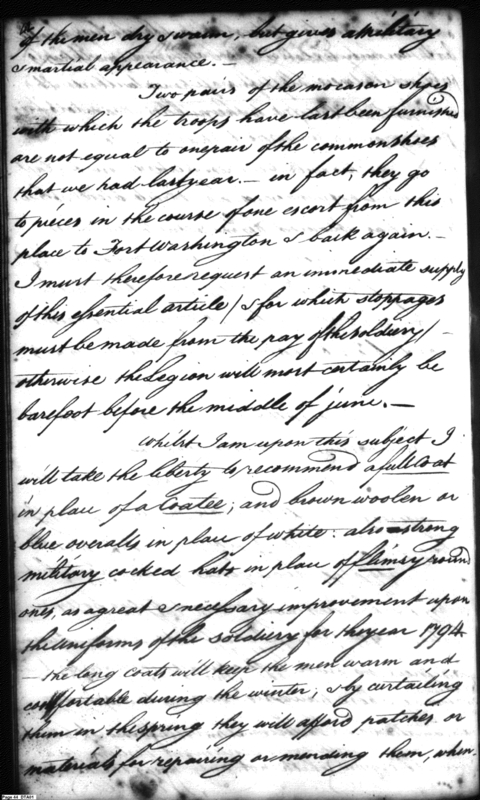 of the men dry & warm, but gives a Military
& martial appearance. —
Two pairs of the mocason shoes
with which the troops have last been furnished
are not equal to one pair of the common shoes
that we had last year. — in fact, they go
to pieces in the course of one escort from this
place to Fort Washington & back again. —
I must therefore request an immediate supply
of this essential article / & for which stoppages
must be made from the pay of the soldiery / —
otherwise the Legion will most certainly be
barefoot before the middle of june. —
Whilst I am upon this subject I
will take the liberty to recommend a full Coat
in place of a Coatee; and brown woolen or
blue overalls in place of white. also a strong
military cocked hat in place of flimsy round
ones, as a great & necessary improvement upon
the Uniforms of the soldiery for the year 1794
— the long coats will keep the men warm and
comfortable during the winter, & by curtailing
them in the spring they will afford patches or
materials for repairing or mending them, when
Page 44 07A01